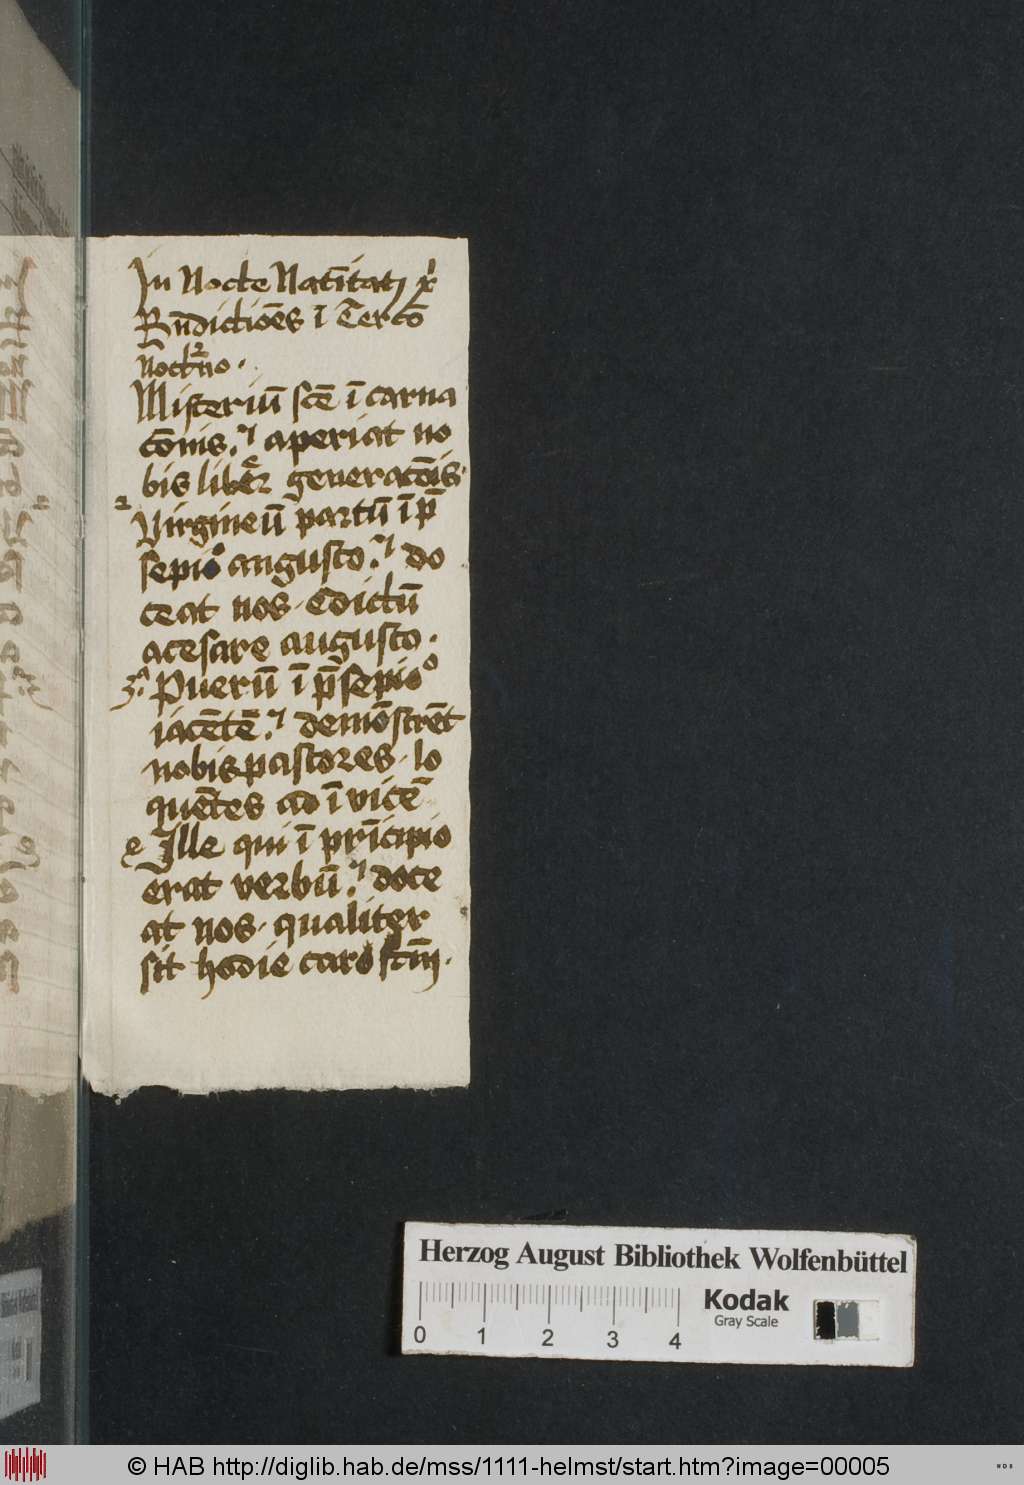 In Nocte Natītatꝭ xͥ
Bn̄dictiōes ī Tercō
Noctrᷓno.
Misteriū scē ī carna
cōnis. aperiat no
bis liber generacōis.
2 Virgineū partū ī p̄
sepio angusto. do
ceat nos. Edictū
acesare augusto.
3ᷓ. Puerū ī p̄sepio
iacētē. demōstrēt
nobis pastores. lo
quētes ad ī vicē
Ille qui ī prīcipio
erat verbū. doce
at nos. qualiter
sit hodie caro
Herzog August Bibliothek Wolfenbüttel
0 1 2 3 4
Kodak
Gray Scale
© HAB http://diglib.hab.de/mss/1111-helmst/start.htm?image=00005